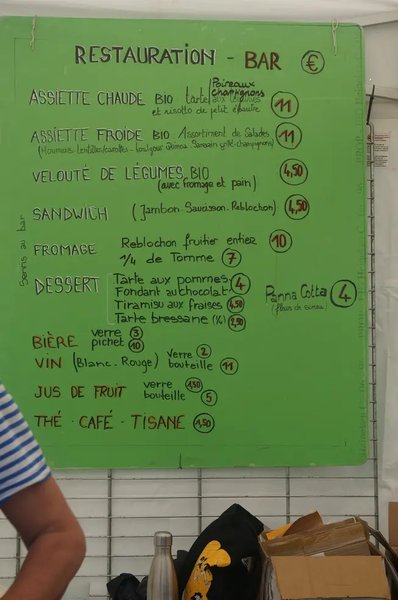 RESTAURATION - BAR €
Poireaux
Champignons
ASSIETTE CHAUDE BIO tarte aux légumes 11
et risotto de petit épautre
ASSIETTE FROIDE BIO Assortiment de Salades 11
(Houmous lentilles/carottes - boulgour Quinoa Sarrasin grillé-champignons)
VELOUTÉ DE LÉGUMES BIO 4,50
(avec fromage et pain)
SANDWICH (Jambon-Saucisson-Reblochon) 4,50
FROMAGE Reblochon fruitier entier 10
1/4 de Tomme 7
DESSERT Tarte aux pommes 4
Fondant au chocolat
Tiramisu aux fraises 4,50
Tarte bressane 2,50
Panna Cotta 4
BIÈRE verre 3
pichet 10
VIN (Blanc-Rouge) verre 2
bouteille 11
JUS DE FRUIT verre 1,50
bouteille 5
THÉ - CAFÉ - TISANE 1,50